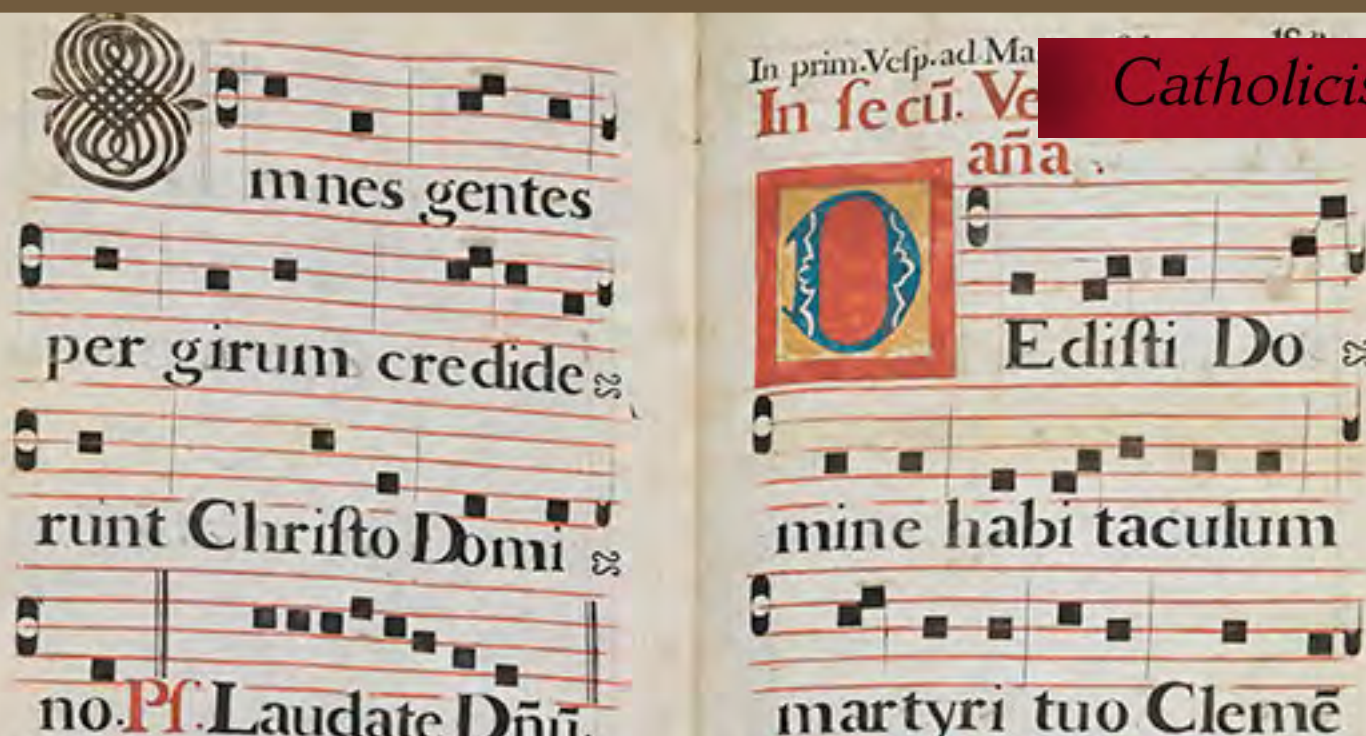 mnes gentes
per girum credide
runt Chriſto Domi
no. Pſ. Laudate Dñũ.
In prim. Veſp. ad Ma
In ſecũ. Ve
aña.
Catholicis
DEdiſti Do
mine habi taculum
martyri tuo Clemẽ